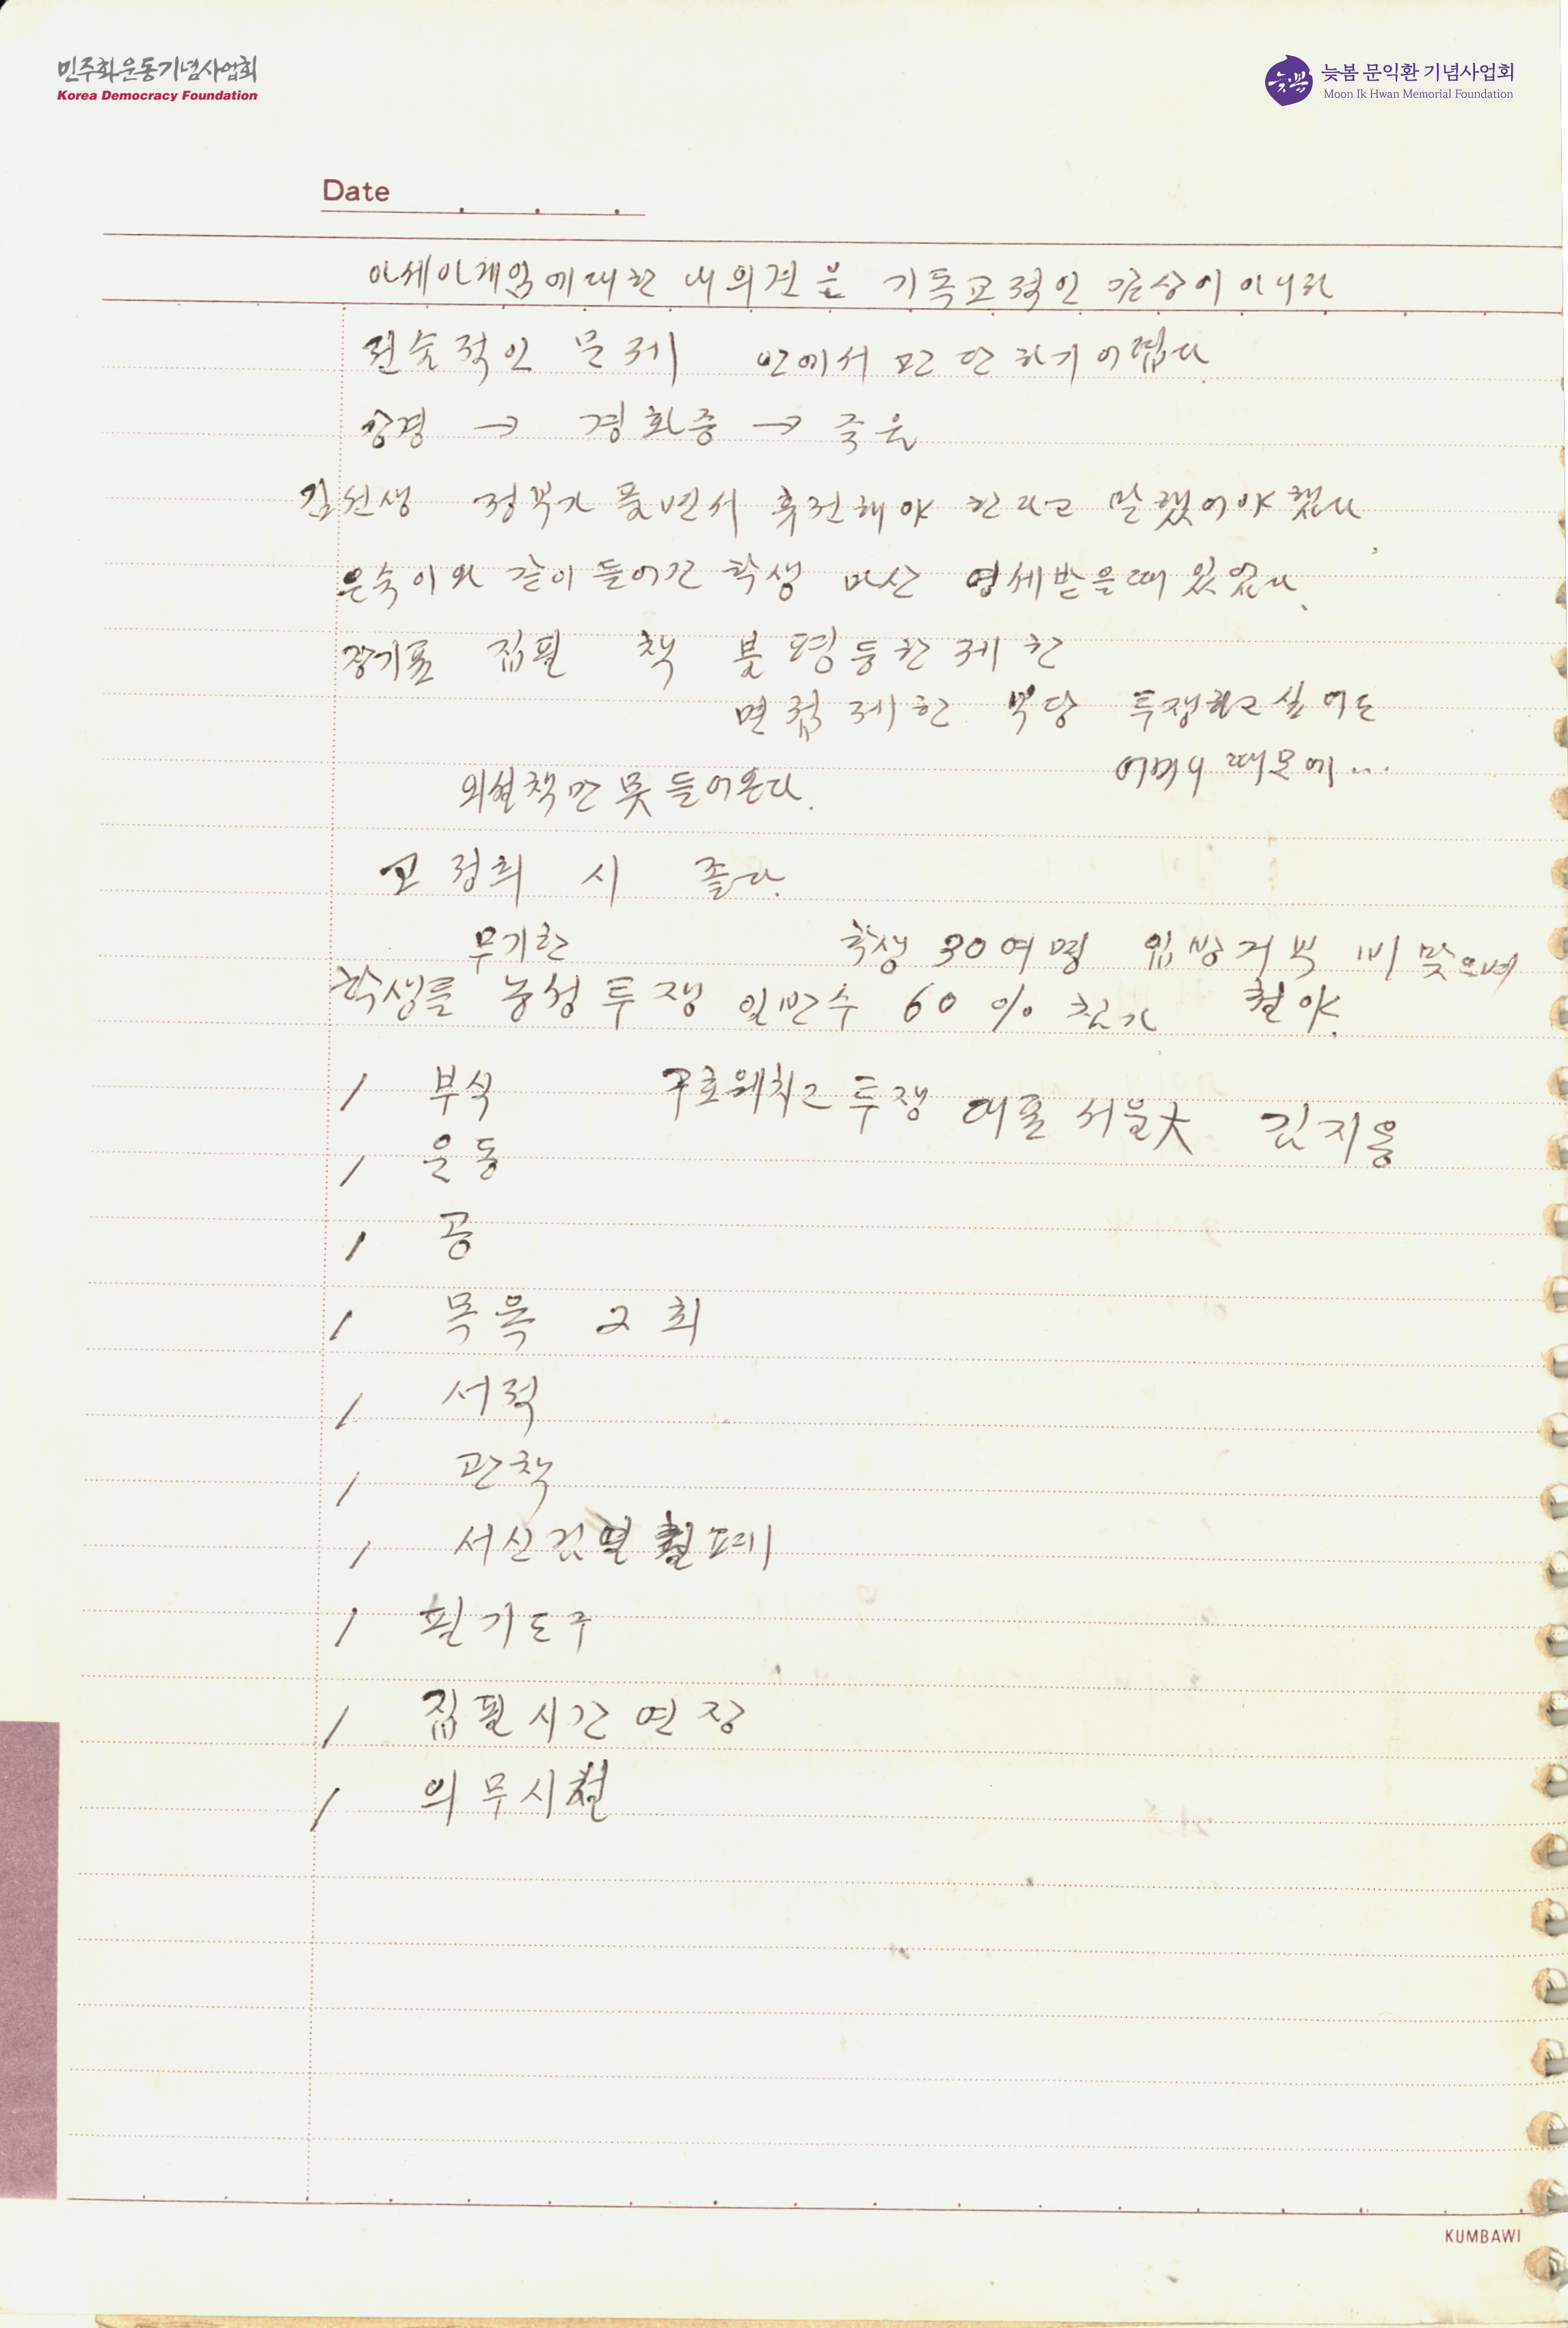 민주화운동기념사업회
Korea Democracy Foundation
늦봄 문익환 기념사업회
Moon Ik Hwan Memorial Foundation
Date
아세아게임에대한 내의견은 기독교적인 감상이 아니라
전술적인 문제 안에서 판단하기 어렵다.
상경 → 경화증 → 죽음
김선생 정부가 풀면서 후전해야 한다고 말했어야 했다
은숙이와 같이 들어간 학생 마산 영세받을때 있었다.
장기표 집필 책 불평등한 제한
면접제한 부당 투쟁하고 싶어도
어머니 때문에...
외설책만 못 들어온다.
고정희 시 좋다.
무기한 학생 30여명 입방거부 비 맞으며
학생들 농성투쟁 일반수 60% 참가 철야.
/ 부식 구호외치고 투쟁 대표 서울大 김지용
/ 운동
/ 공
/ 목욕 2회
/ 서적
/ 관책
/ 서신검열 철폐
/ 필기도구
/ 집필시간 연장
/ 의무시설
KUMBAWI